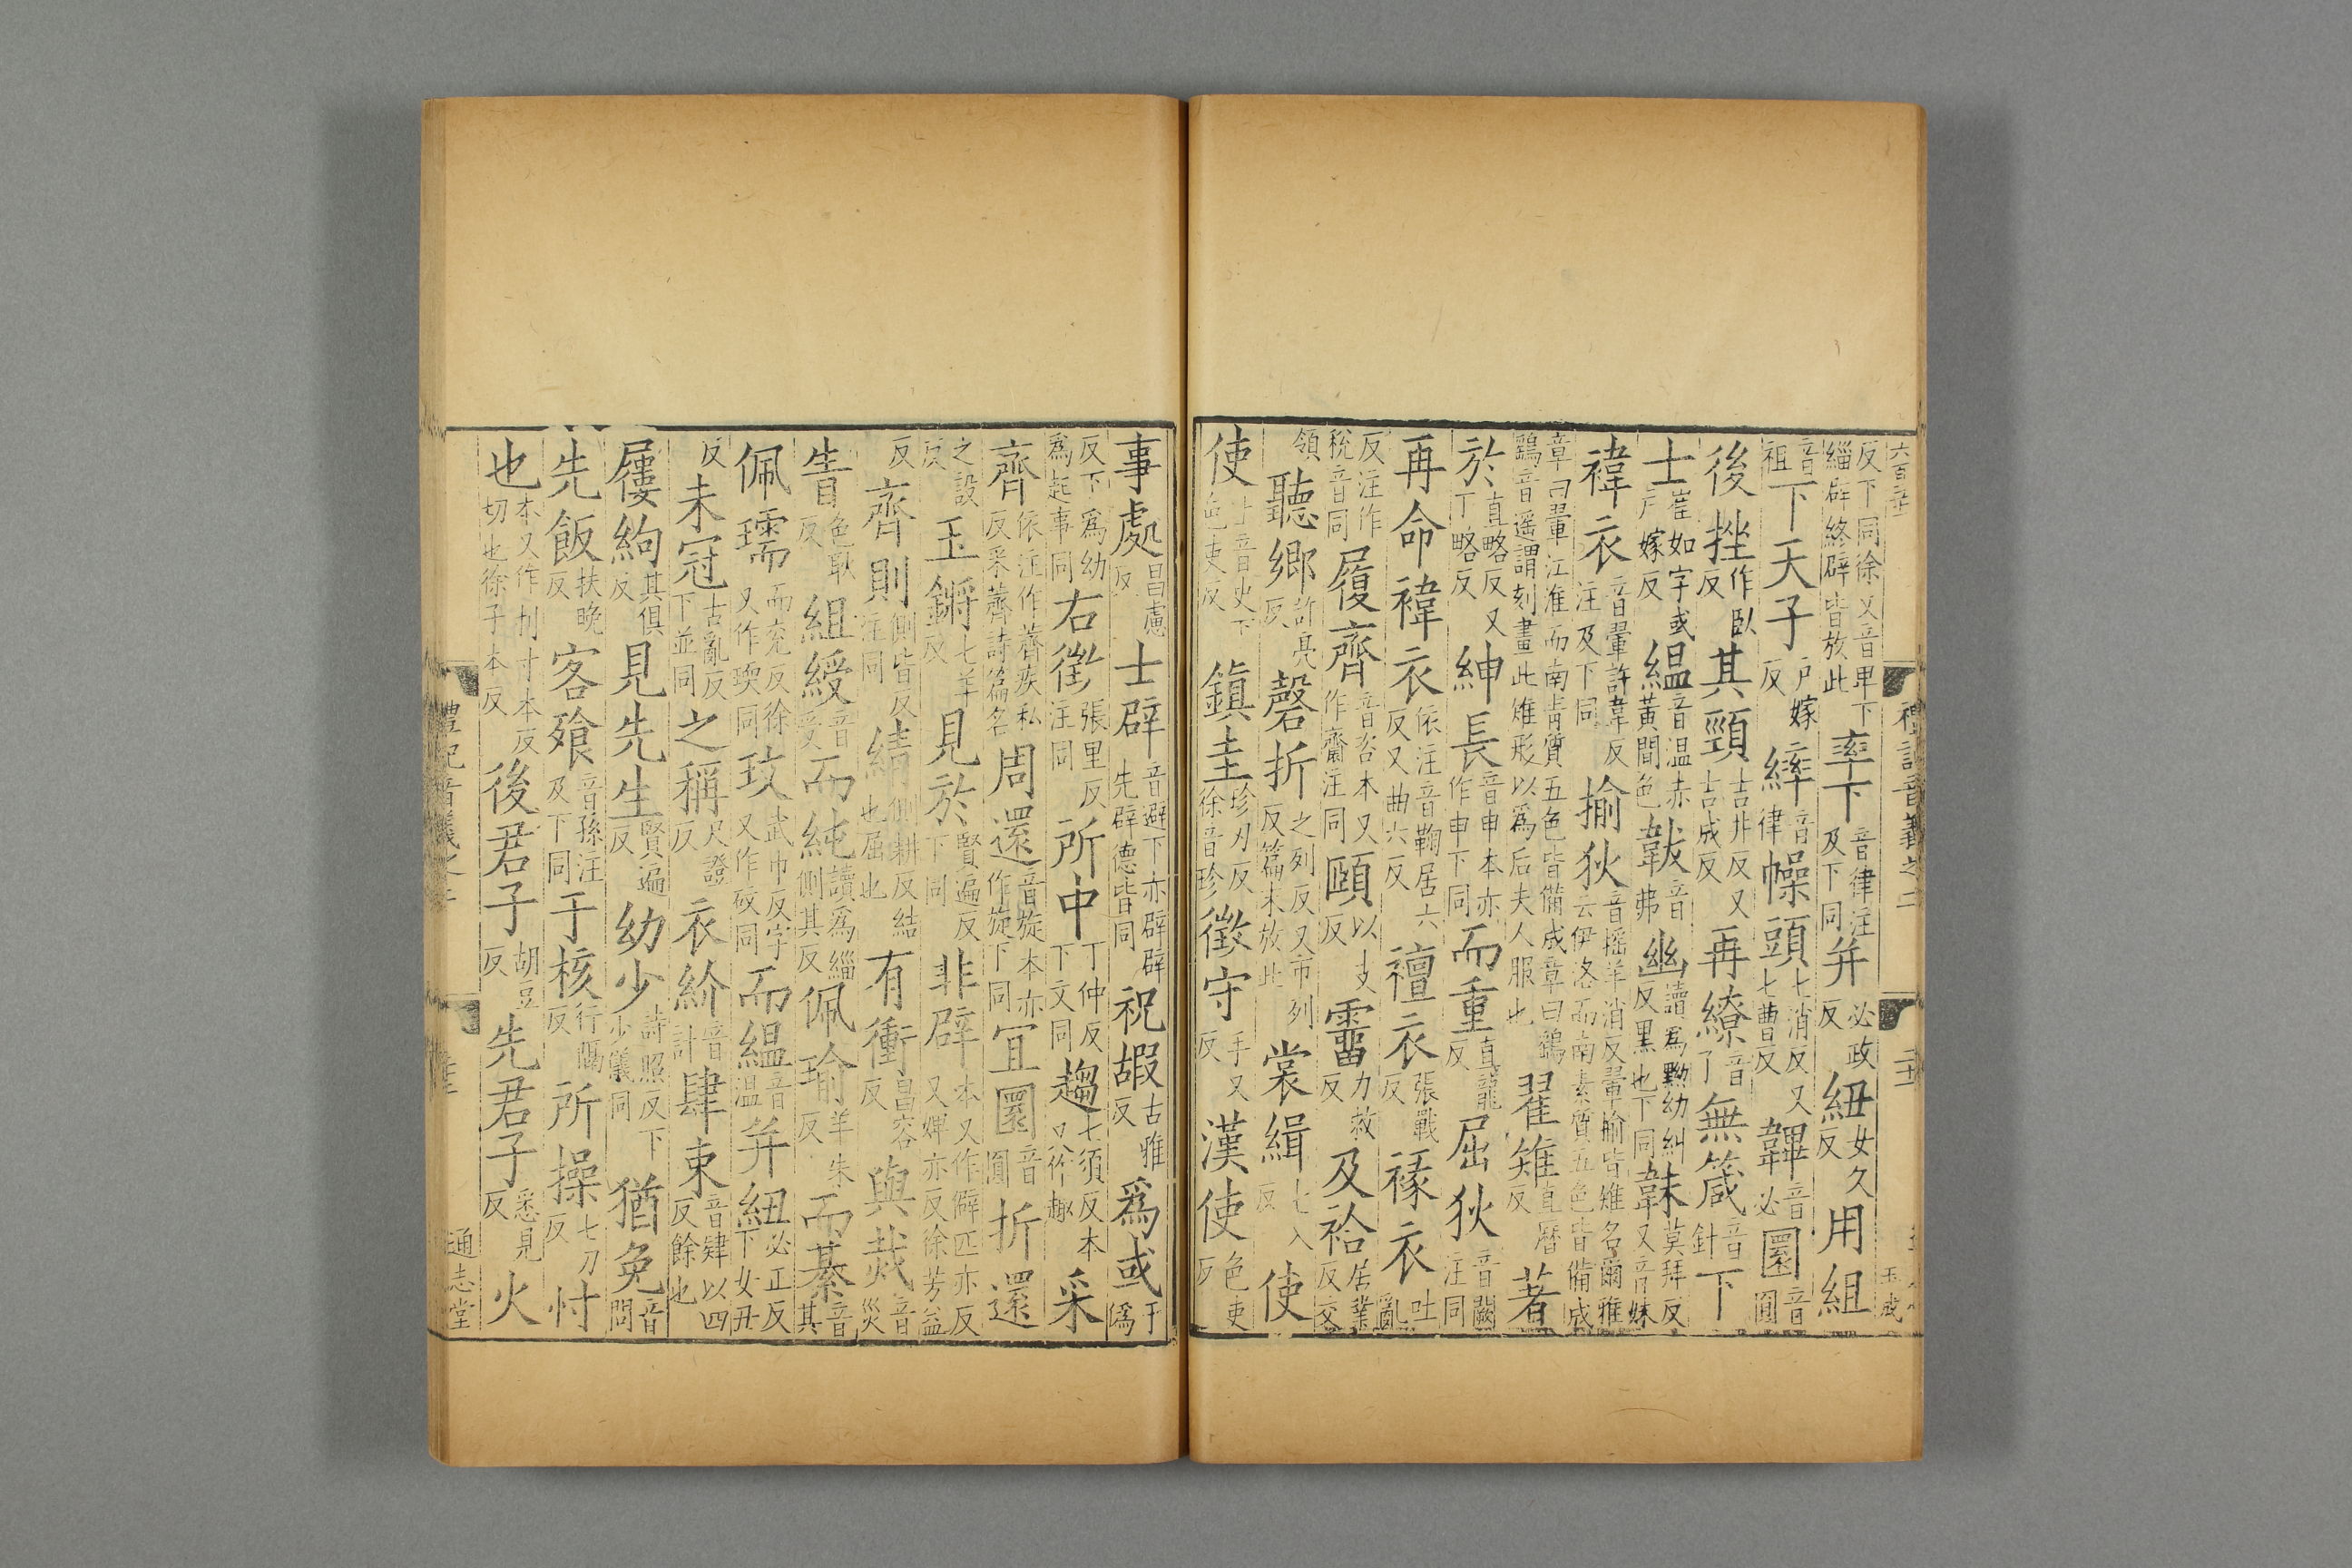 反下同徐又音卑下緇辟終辟皆放此率下音律注及下同并必政反紐女久反用組
音祖下天子戶嫁反繂音律幧頭七消反又七曹反韠音必圜音圓
後挫作臥反其頸吉井反又吉成反再繚音了無箴音針下
士崔如字或戶嫁反縕音温赤黃間色韍音弗幽讀爲黝幼糾反黑也下同韎莫拜反又音妹
褘衣音翬許韋反注及下同揄狄音摇羊消反翬揄皆雉名爾雅云伊洛而南素質五色皆備成
章曰翬江淮而南靑質五色皆備成章曰鷂鷂音遥謂刻畫此雉形以爲后夫人服也翟雉直曆反著
於直略反又丁略反紳音申本亦作申下同長而重直龍反屈狄音闕注同
再命褘衣依注音鞠居六反又曲六反襢衣張戰反褖衣吐亂
反注作稅音同履齊音咨本又作齋注同頤以支反霤力救反及袷居業反交
領聽鄉許亮反磬折之列反又市列反篇末放此裳緝七入反使
使音史下色吏反鎮圭珍刃反徐音珍徵守手又反漢使色吏反
事處昌慮反士辟音避下亦辟辟先辟德皆同祝嘏古雅反爲或于僞
反下爲幼爲起事同右徵張里反注同所中丁仲反下文同趨七須反本又作趣采
齊依注作薺疾私反采薺詩篇名周還音旋本亦作旋下同宜圜音圓折還
之設反玉鏘七羊反見於賢遍反下同非辟本又作僻匹亦反又婢亦反徐芳益
反齊則側皆反注同綪側耕反結也屈也有衝昌容反與烖音災
眚色耿反組綬音受而純讀爲緇側其反佩瑜羊朱反而綦音其
佩瓀而兖反徐又作瑌同玟武巾反字又作砇同而縕音温并紐必正反下女丑
反未冠古亂反下並同之稱尺證反衣紟音計肆束音肄以四反餘也
屨絇其俱反見先生賢遍反幼少詩照反下少儀同猶免音問
先飯扶晚反客飧音孫注及下同于核行隔反所操七刀反忖
也本又作刌寸本反切也徐子本反後君子胡豆反先君子悉見反火
禮記音義之二
通志堂